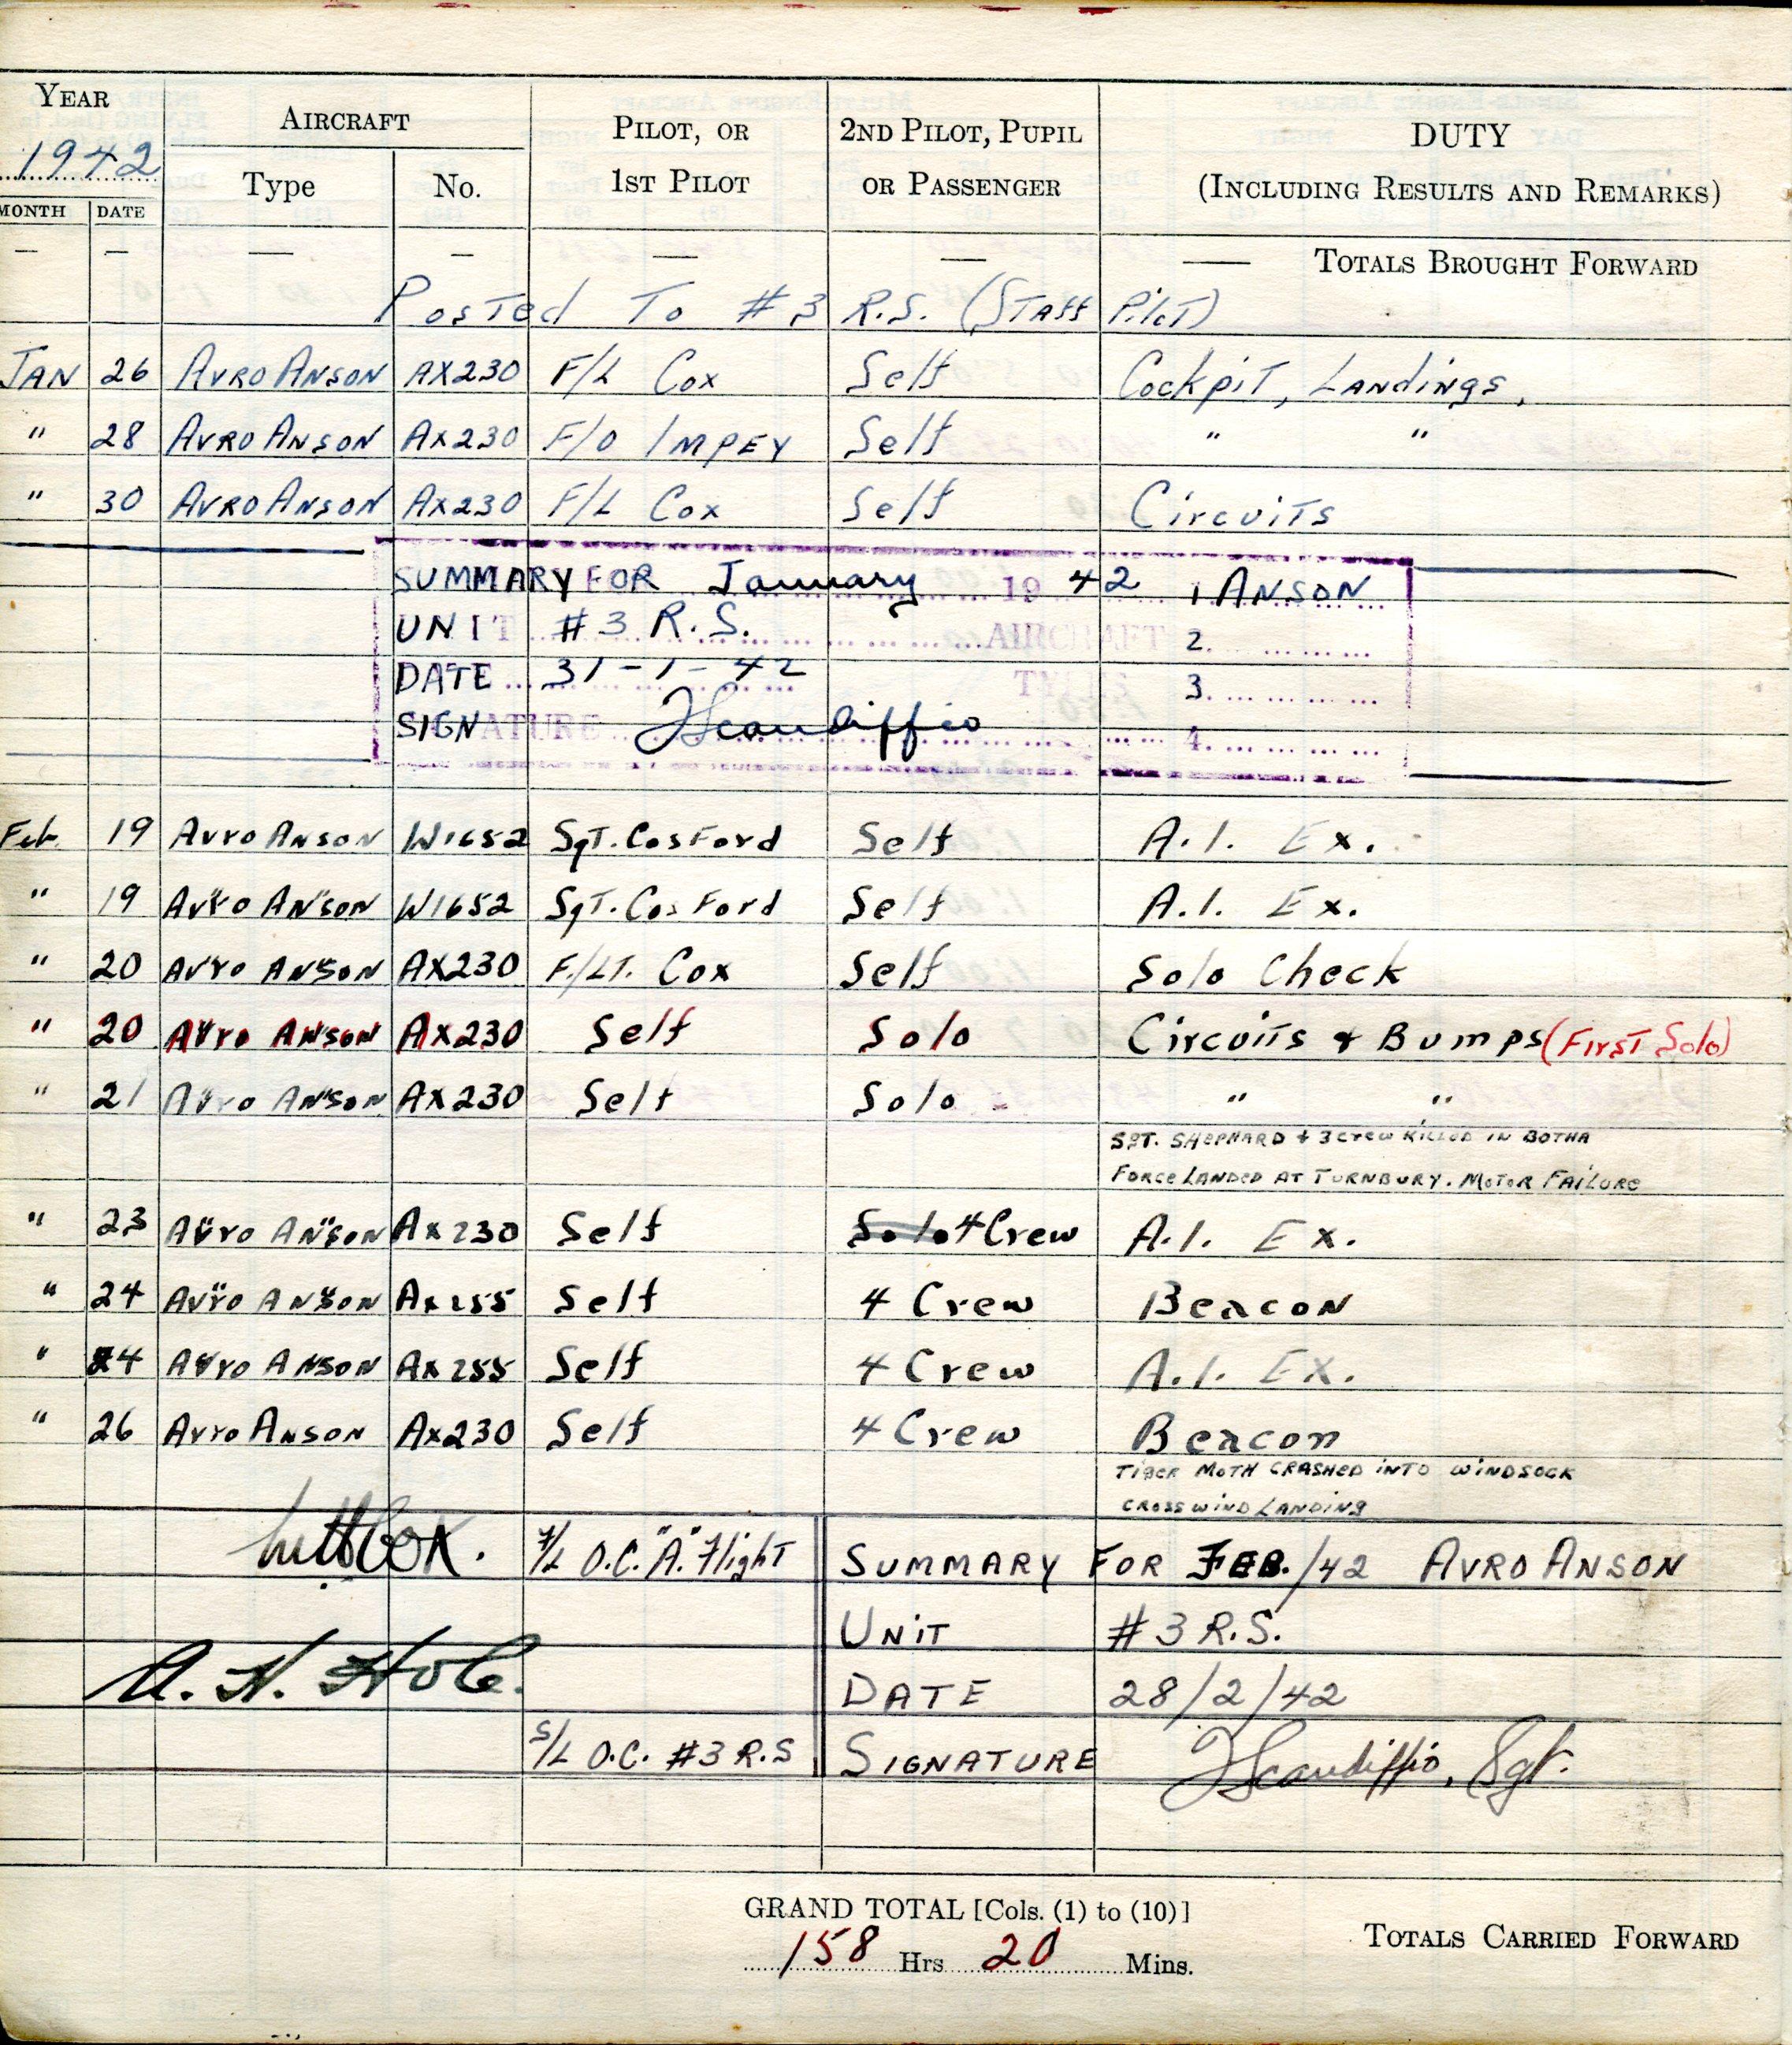 YEAR 1942 AIRCRAFT PILOT, OR 1ST PILOT 2ND PILOT, PUPIL OR PASSENGER DUTY (INCLUDING RESULTS AND REMARKS)
MONTH DATE Type No.
— — — — — — — TOTALS BROUGHT FORWARD
Posted To #3 R.S. (Staff Pilot)
JAN 26 AVRO ANSON AX230 F/L Cox Self Cockpit, Landings,
" 28 AVRO ANSON AX230 F/O IMPEY Self " "
" 30 AVRO ANSON AX230 F/L Cox Self Circuits
SUMMARY FOR January 1942 1 ANSON
UNIT #3 R.S. AIRCRAFT 2.
DATE 31-1-42 TYPES 3.
SIGNATURE JScandiffio 4.
Feb. 19 Avro Anson W1652 Sgt. Cosford Self A.I. Ex.
" 19 Avro Anson W1652 Sgt. Cosford Self A.I. Ex.
" 20 Avro Anson AX230 F/LT. Cox Self Solo Check
" 20 Avro Anson AX230 Self Solo Circuits & Bumps (First Solo)
" 21 Avro Anson AX230 Self Solo " "
SGT. SHEPHARD & 3 CREW KILLED IN BOTHA
FORCE LANDED AT TURNBURY. MOTOR FAILURE
" 23 Avro Anson AX230 Self Solo 4 Crew A.I. Ex.
" 24 Avro Anson AX255 Self 4 Crew Beacon
" 24 Avro Anson AX255 Self 4 Crew A.I. Ex.
" 26 Avro Anson AX230 Self 4 Crew Beacon
TIGER MOTH CRASHED INTO WINDSOCK
CROSS WIND LANDING
Cox. F/L O.C. "A" Flight SUMMARY FOR FEB./42 AVRO ANSON
UNIT #3 R.S.
A. H. Hole. DATE 28/2/42
S/L O.C. #3 R.S SIGNATURE JScandiffio, Sgt.
GRAND TOTAL [Cols. (1) to (10)]
158 Hrs 20 Mins. TOTALS CARRIED FORWARD